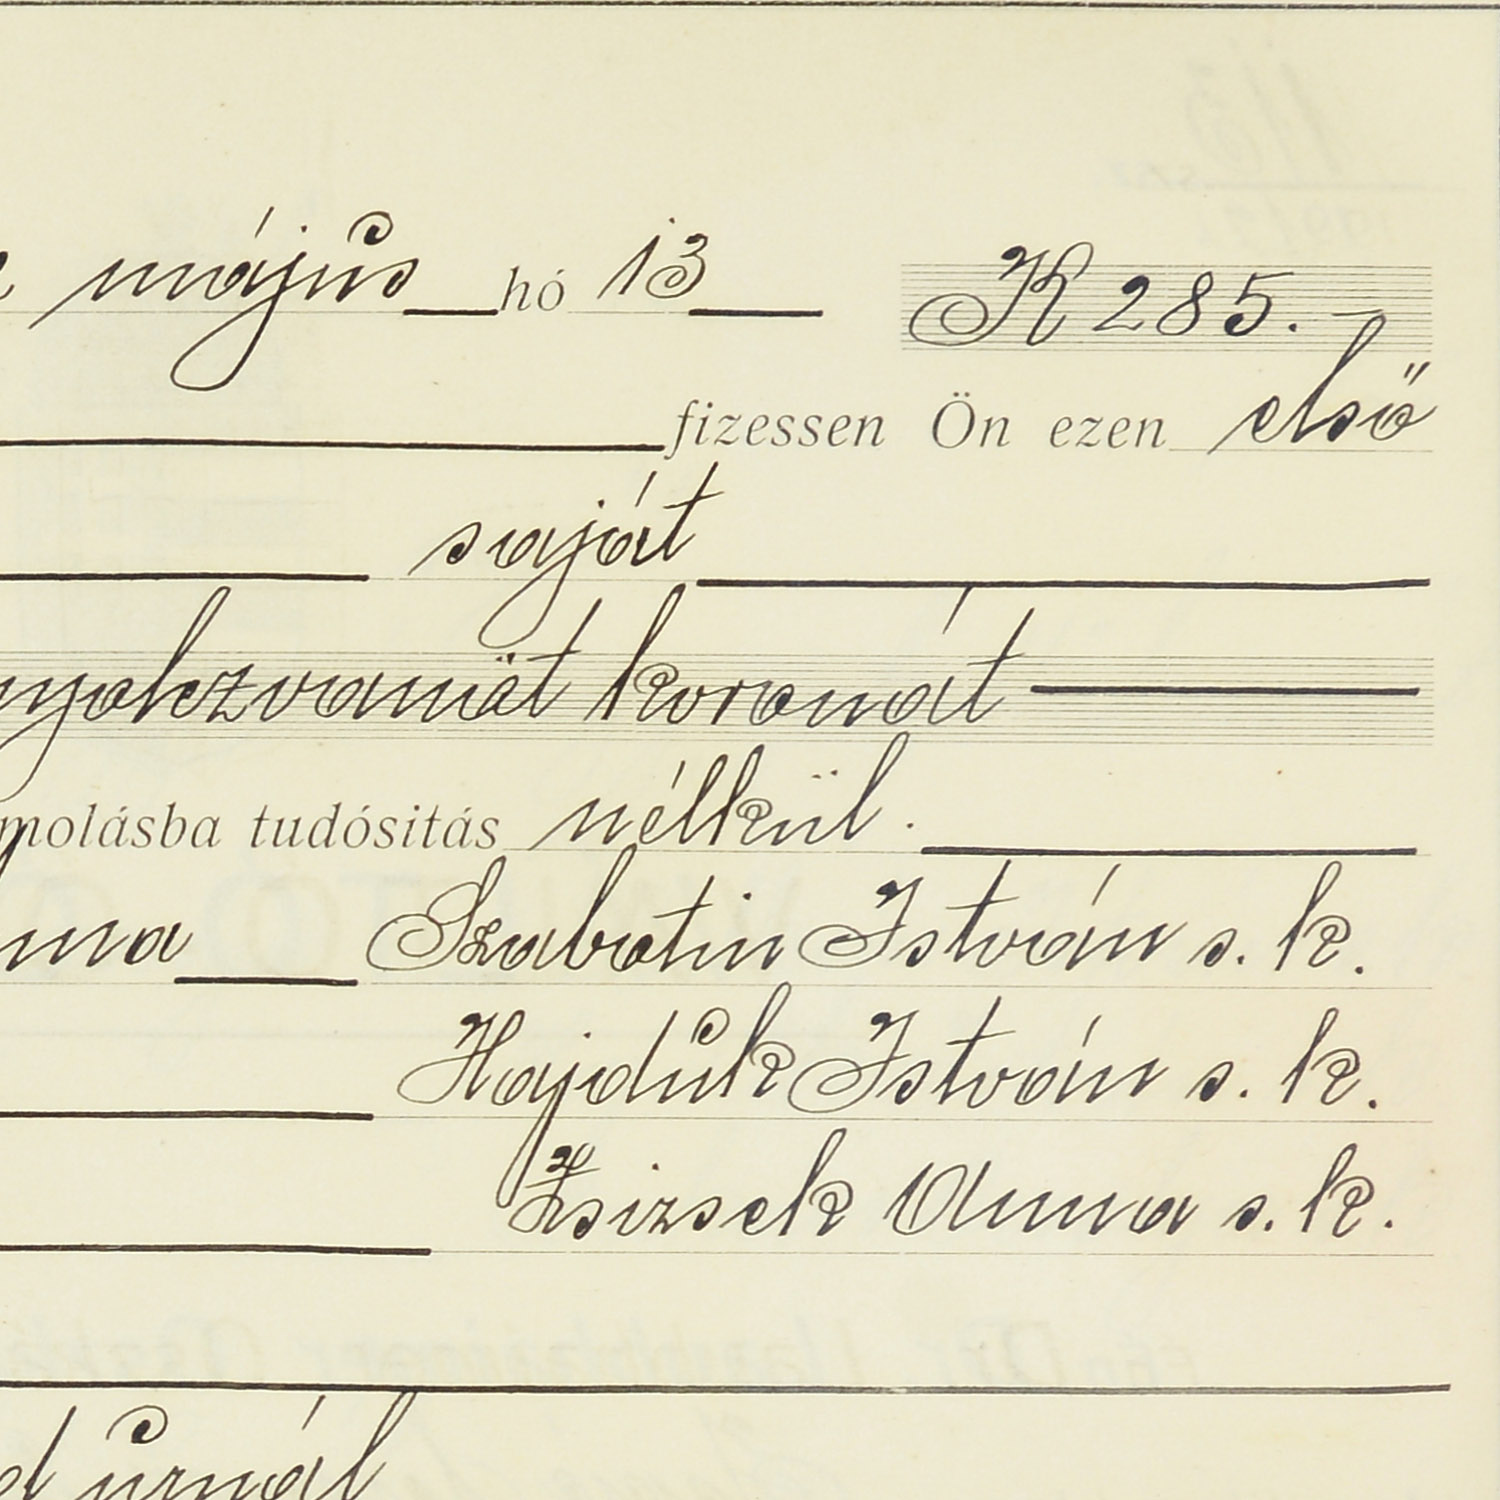 május hó 13 K 285.-
fizessen Ön ezen első
saját
nyolczvanöt koronát
molásba tudósitás nélkül.
Szabatin István s. k.
Hajduk István s. k.
Zsizsek Anna s. k.
úrnál